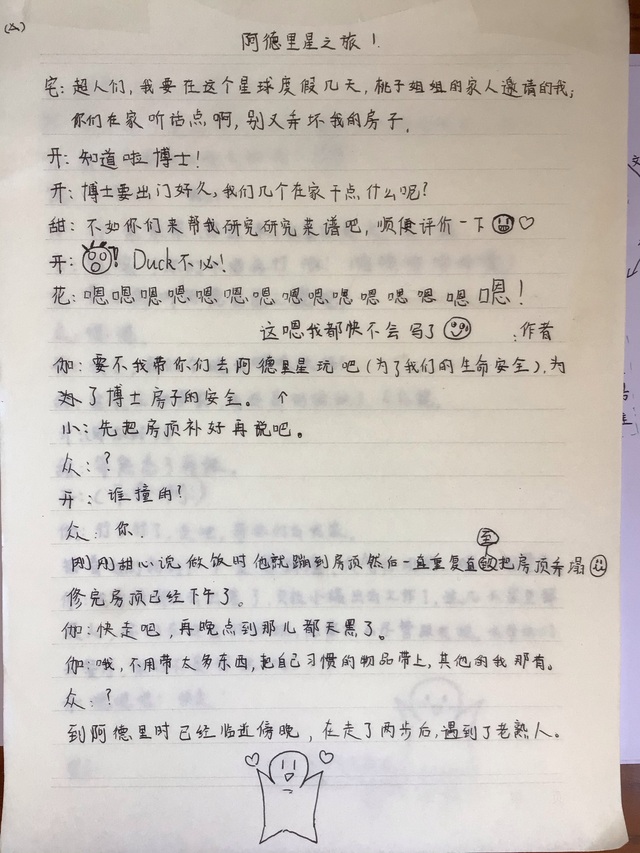 阿德里星之旅1.
宅:超人们,我要在这个星球度假几天,桃子姐姐的家人邀请的我;
你们在家听话点啊,别又弄坏我的房子.
开:知道啦博士!
开:博士要出门好久,我们几个在家干点什么呢?
甜:不如你们来帮我研究研究菜谱吧,顺便评价一下♡
开:! Duck不必!
花:嗯嗯嗯嗯嗯嗯嗯嗯嗯嗯嗯嗯嗯嗯嗯!
这嗯我都快不会写了 :作者
伽:要不我带你们去阿德里星玩吧(为了我们的生命安全),为
了博士房子的安全。个
小:先把房顶补好再说吧。
众:?
开:谁撞的?
众:你.
刚刚甜心说做饭时他就蹦到房顶然后一直重复直至把房顶弄塌
修完房顶已经下午了。
伽:快走吧,再晚点到那儿都天黑了。
伽:哦,不用带太多东西,把自己习惯的物品带上,其他的我那有。
众:?
到阿德里时已经临近傍晚,在走了两步后,遇到了老熟人。